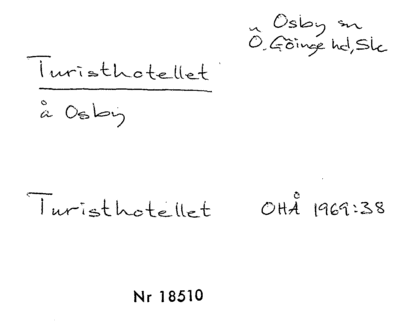 Osby sn
Ö. Göinge hd, Sk
Turisthotellet
å Osby
Turisthotellet OHÅ 1969:38
Nr 18510